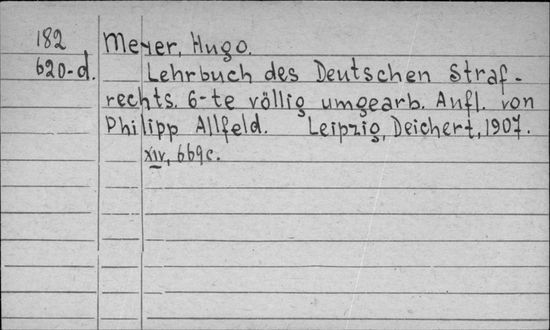 182 Meyer, Hugo.
620-d. Lehrbuch des Deutschen Straf-
rechts. 6-te völlig umgearb. Aufl. von
Philipp Allfeld. Leipzig, Deichert, 1907.
XIV, 669c.